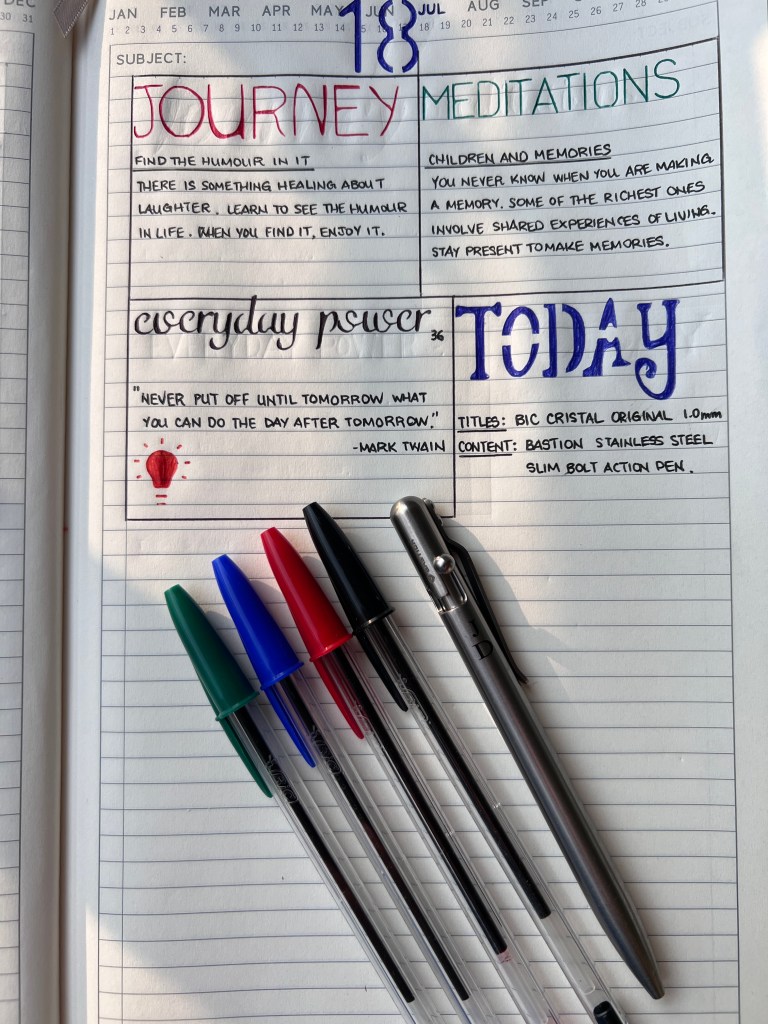 DEC
30 31
JAN FEB MAR APR MAY JUN JUL AUG SEP
1 2 3 4 5 6 7 8 9 10 11 12 13 14 15 18 19 20 21 22 23 24 25 26 27 28
18
SUBJECT:
JOURNEY
FIND THE HUMOUR IN IT
THERE IS SOMETHING HEALING ABOUT
LAUGHTER. LEARN TO SEE THE HUMOUR
IN LIFE. WHEN YOU FIND IT, ENJOY IT.
MEDITATIONS
CHILDREN AND MEMORIES
YOU NEVER KNOW WHEN YOU ARE MAKING
A MEMORY. SOME OF THE RICHEST ONES
INVOLVE SHARED EXPERIENCES OF LIVING.
STAY PRESENT TO MAKE MEMORIES.
everyday power 36
"NEVER PUT OFF UNTIL TOMORROW WHAT
YOU CAN DO THE DAY AFTER TOMORROW."
-MARK TWAIN
TODAY
TITLES: BIC CRISTAL ORIGINAL 1.0mm
CONTENT: BASTION STAINLESS STEEL
SLIM BOLT ACTION PEN.